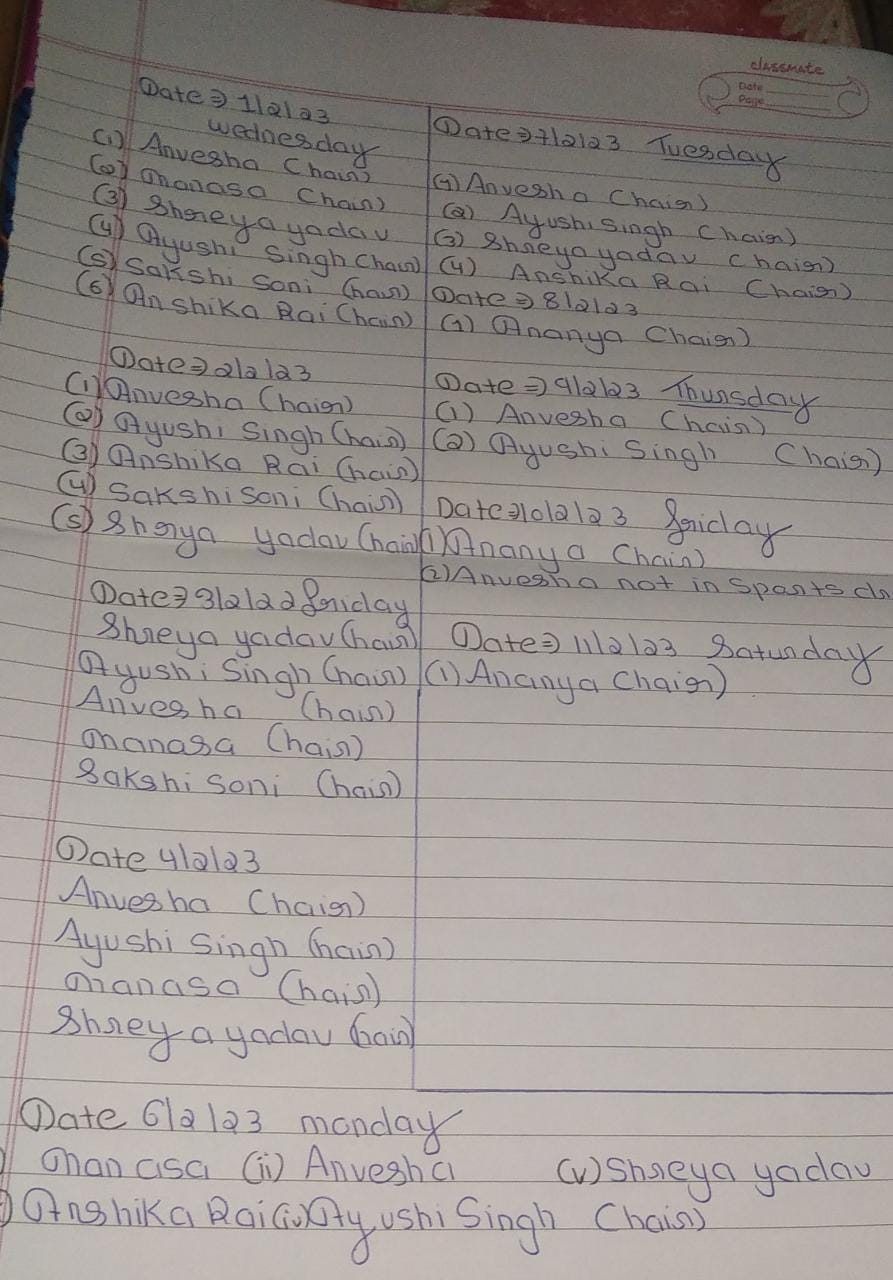 classmate
Date
Page
Date ⇒ 1/2/23
Wednesday
(1) Anvesha (hair)
(2) Manasa (hair)
(3) Shreya yadav
(4) Ayushi Singh (hair)
(5) Sakshi Soni (hair)
(6) Anshika Rai (hair)
Date ⇒ 2/2/23
(1) Anvesha (hair)
(2) Ayushi Singh (hair)
(3) Anshika Rai (hair)
(4) Sakshi Soni (hair)
(5) Shrya yadav (hair)
Date ⇒ 3/2/22 friday
Shreya yadav (hair)
Ayushi Singh (hair)
Anvesha (hair)
Manasa (hair)
Sakshi Soni (hair)
Date 4/2/23
Anvesha (hair)
Ayushi Singh (hair)
Manasa (hair)
Shreya yadav (hair)
Date ⇒ 7/2/23 Tuesday
(1) Anvesha (hair)
(2) Ayushi Singh (hair)
(3) Shreya yadav (hair)
(4) Anshika Rai (hair)
Date ⇒ 8/2/23
(1) Ananya (hair)
Date ⇒ 9/2/23 Thursday
(1) Anvesha (hair)
(2) Ayushi Singh (hair)
Date ⇒ 10/2/23 friday
(1) Ananya (hair)
(2) Anvesha not in sports
Date ⇒ 11/2/23 Saturday
(1) Ananya (hair)
Date 6/2/23 monday
Manasa (ii) Anvesha (v) Shreya yadav
Anshika Rai (iv) Ayushi Singh (hair)